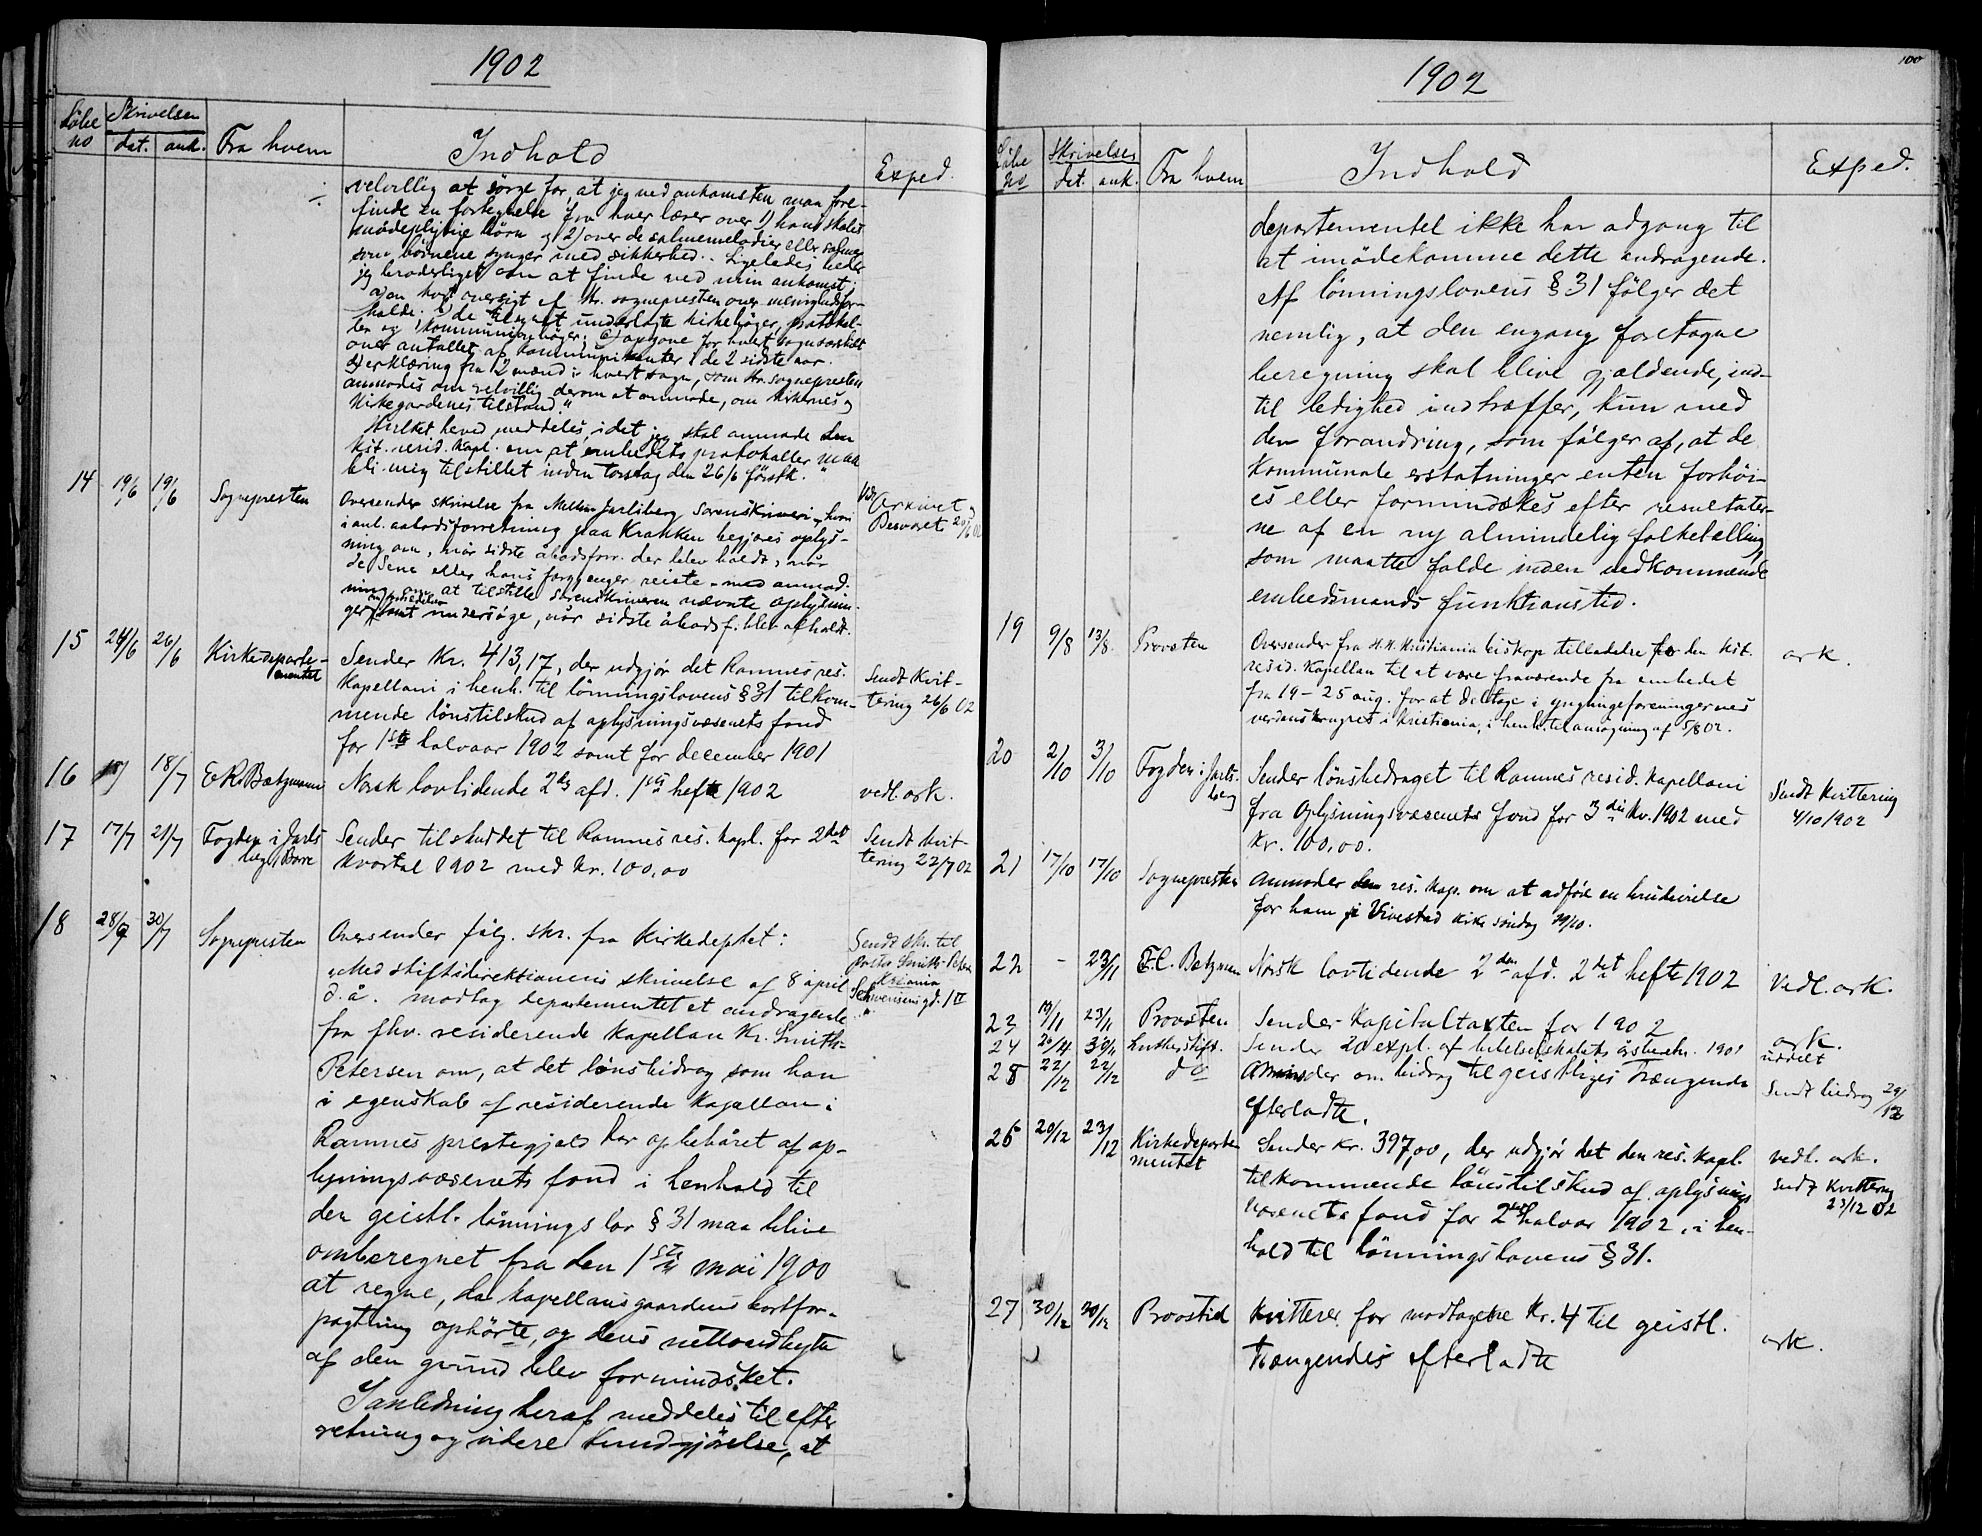 1902
Løbe no | Skrivelsen dat. | ank. | Fra hvem | Indhold | Exped.
÷ velvillig at sørge for, at jeg ved ankomsten maa fore-
finde en fortegnelse fra hver lærer over 1) hans skoles
mødepligtige børn og 2) over de salmemelodier eller salmer
som børnene synger med sikkerhed. Ligeledes beder
jeg broderligst om at finde ved min ankomst:
a) en kort oversigt af Hr. sognepresten over menighedsfor-
holde. b) de tilsynet underlagte kirkebøger, protokol-
ler og kommunionbøger; c) opgave for hvert sogn særskilt
over antallet af kommunikanter i de 2 sidste aar.
d) erklæring fra 2 mænd i hvert sogn, som Hr. sognepresten
anmodes om velvillig derom at anmode, om kirkernes og
kirkegaardenes tilstand."
Hvilket herved meddeles, idet jeg skal anmode den
kst. resid. kapl. om at embedets protokoller maa
bli mig tilstillet inden torsdag den 26/6 førstk. "
14 | 19/6 | 19/6 | Sognepresten | Oversender skrivelse fra Mellem Jarlsberg Sorenskriveri, hvori
i anl. aabodsforretning paa Krakken begjæres oplys-
ning om, når sidste åbodsforr. der blev holdt, når
de Sene eller hans forgjænger reiste - med anmod-
ning om at tilstille sorenskriveren nævnte oplysnin-
ger samt undersøge, når sidste åbodsf. blev afholdt. | Vedl. Arkivet og Besvaret 20/6 02
15 | 24/6 | 26/6 | Kirkedeparte-mentet | Sender Kr. 413,17, der udgjør det Ramnes res.
Kapellani i henh. til lønningslovens § 31 tilkom-
mende lønstilskud af oplysningsvæsenets fond
for 1ste halvaar 1902 samt for december 1901 | Sendt Kvit-tering 26/6 02
16 | | 18/7 | E R Bætzmann | Norsk lovtidende 2den afd. 1ste hefte 1902 | vedl. ark.
17 | 17/7 | 21/7 | Fogden i Jarls-berg | Sender tilskuddet til Ramnes res. kapl. for 2det
Kvartal 1902 med Kr. 100,00 | Sendt Kvit-tering 22/7 02
18 | 28/7 | 30/7 | Sognepresten | Oversender følg. skr. fra Kirkedeptet: | Sendt skr. til Pastor Smith-Petersen Kr.ania Schwensens gd. 1 II
"Med stiftsdirektionens skrivelse af 8 april
d.å. modtog departementet et andragende
fra fhv. residerende kapellan Kr. Smith-
Petersen om, at det lønsbidrag som han
i egenskab af residerende kapellan i
Ramnes prestegjeld har opebåret af op-
lysningsvæsenets fond i henhold til
den geistl. lønningslov § 31 maa blive
omberegnet fra den 1ste mai 1900
at regne, da kapellansgaardens bortfor-
pagtning ophørte, og dens nettoudbytte
af den grund blev formindsket.
I anledning heraf meddeles til efter
retning og videre kundgjørelse, at
100
1902
Løbe no | Skrivelsen dat. | ank. | Fra hvem | Indhold | Exped.
departementet ikke har adgang til
at imødekomme dette andragende.
Af lønningslovens § 31 følger det
nemlig, at den engang foretagne
beregning skal blive gjældende, ind-
til ledighed indtræffer, kun med
den forandring, som følger af, at de
kommunale erstatninger enten forhøi-
es eller formindskes efter resultater-
ne af en ny almindelig folketælling,
som maatte falde inden vedkommende
embedsmands funktionstid.
19 | 9/8 | 13/8 | Provsten | Oversender fra H.H. Kristiania biskop tilladelse for den kst.
resid. kapellan til at være fraværende fra embedet
fra 19 - 25 aug. for at deltage i ynglingeforeningernes
verdenskongres i Kristiania, i henh. til ansøgning af 5/8 02. | ark.
20 | 2/10 | 3/10 | Fogden i Jarls-berg | Sender lønsbedraget til Ramnes resid. kapellani
fra Oplysningsvæsenets fond for 3die Kv. 1902 med
Kr. 100,00. | Sendt Kvittering 4/10 1902
21 | 17/10 | 17/10 | Sognepresten | Anmoder den res. kap. om at udføre en brudevielse
for ham i Vivestad kirke søndag 19/10.
22 | - | 23/11 | E.C. Bætzman | Norsk lovtidende 2den afd. 2det hefte 1902 | Vedl. ark.
23 | 19/11 | 23/11 | Provsten | Sender Kapitaltaxten for 1902 | ark.
24 | 20/4 | 30/11 | Lutherstift. | Sender 20 expl. af bibelselskabets årsberetn. 1901 | uddelt
25 | 22/12 | 22/12 | do | Anmoder om bidrag til geistliges Trængende
efterladte. | Sendt bidrag 29/12
26 | 20/12 | 23/12 | Kirkedeparte-mentet | Sender Kr. 397,00, der udgjør det den res. kapl.
tilkommende lønstilskud af oplysnings
væsenets fond for 2det halvår 1902, i hen-
hold til lønningslovens § 31. | vedl. ark. Sendt Kvittering 23/12 02
27 | 30/12 | 30/12 | Provstid | Kvitterer for modtagelse Kr. 4 til geistl.
trængendes efterladte | ark.